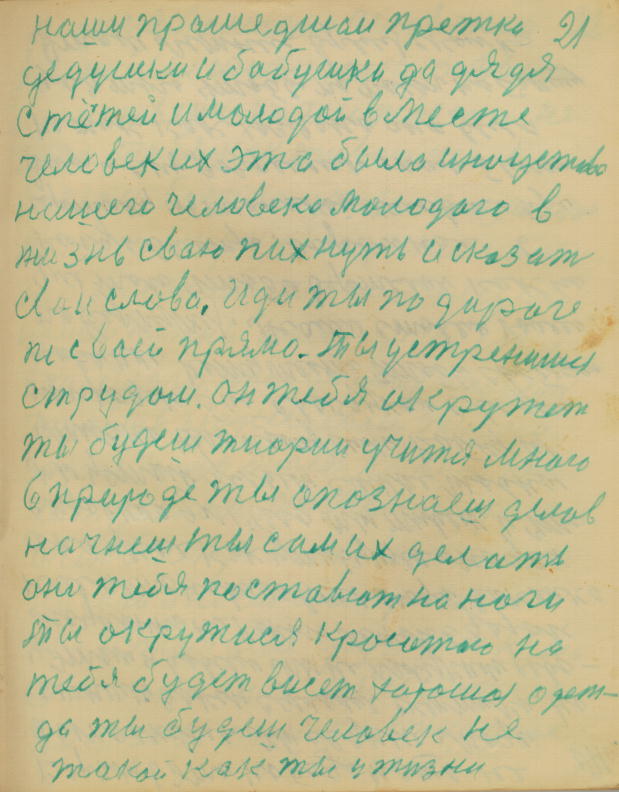 наши прошедшаи прежки 21
дедушки и бабушки да дядя
с тётей и молодой вместе
человек их это было иноцство
нашего человека молодого в
жизнь сваю пихнуть и сказат
сваи слова. Иди ты по дароге
по сваей прямо. ты устренишся
с трудом. он тебя окружет
ты будеш тиории учитя много
в природе ты опознаеш делов
начнеш ты сам их делать
они тебя поставют на ноги
ты окружися красотою на
тебя будет висет хорошая одеж-
да ты будеш человек не
такой как ты у жизни